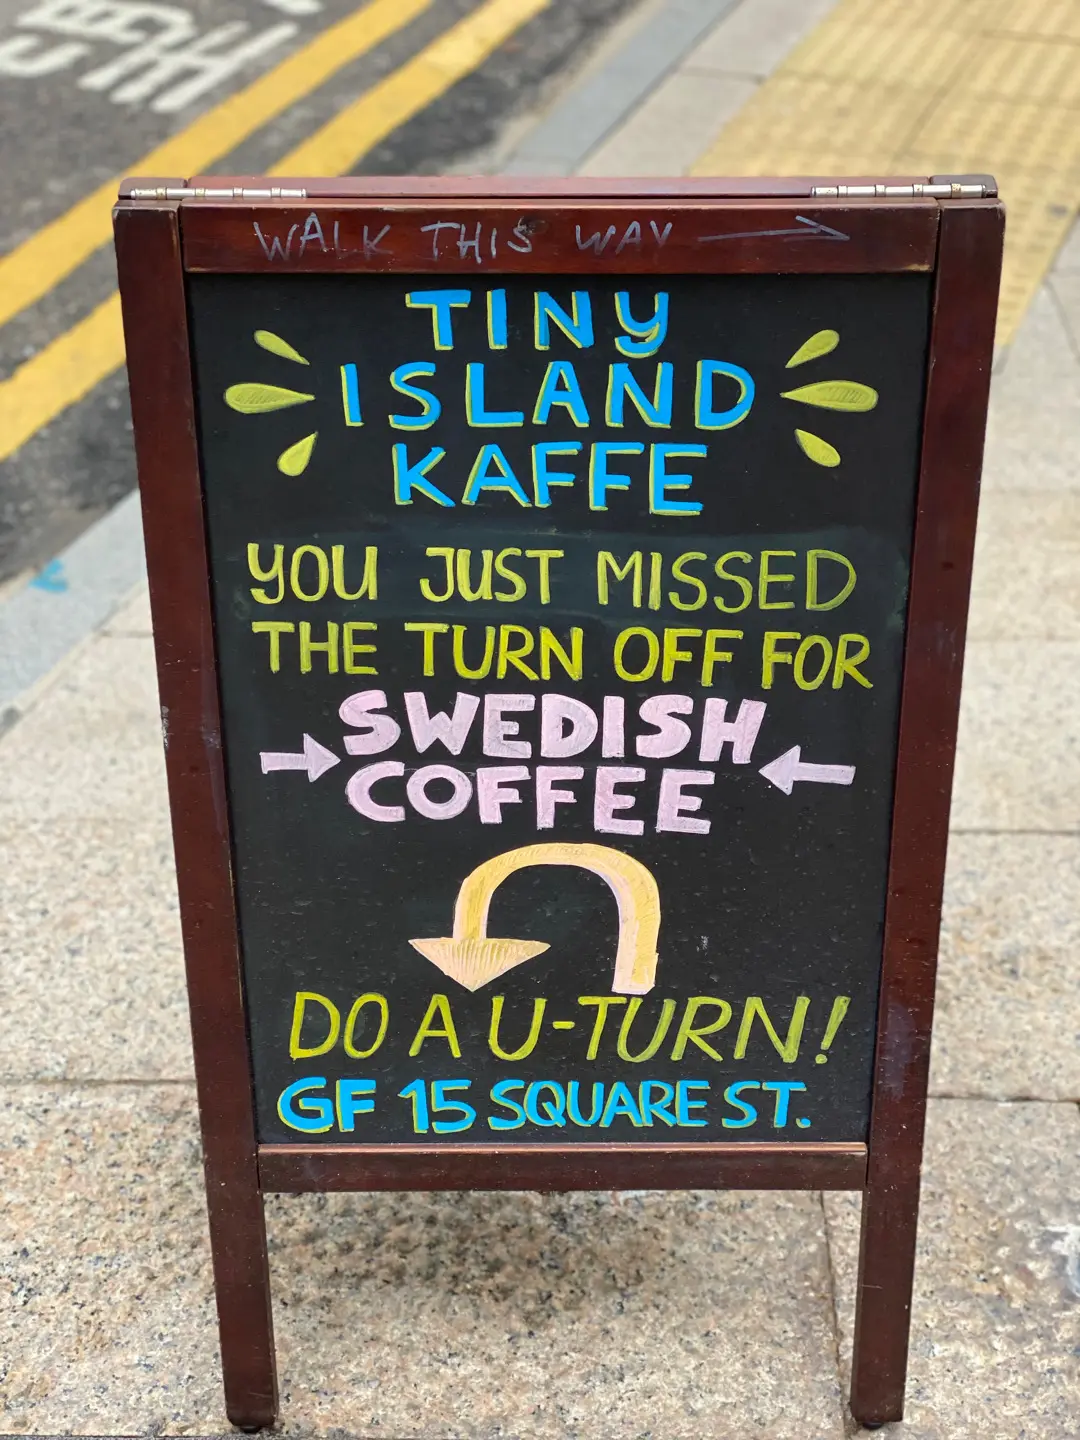 WALK THIS WAY
TINY
ISLAND
KAFFE
YOU JUST MISSED
THE TURN OFF FOR
SWEDISH
COFFEE
DO A U-TURN!
GF 15 SQUARE ST.